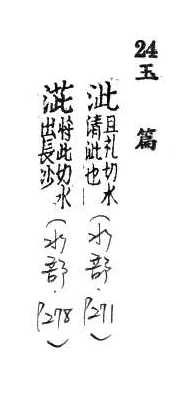 24
玉篇
泚 且礼切水
清泚也 (水部. P271)
將此切水
出長沙 (水部. P278)